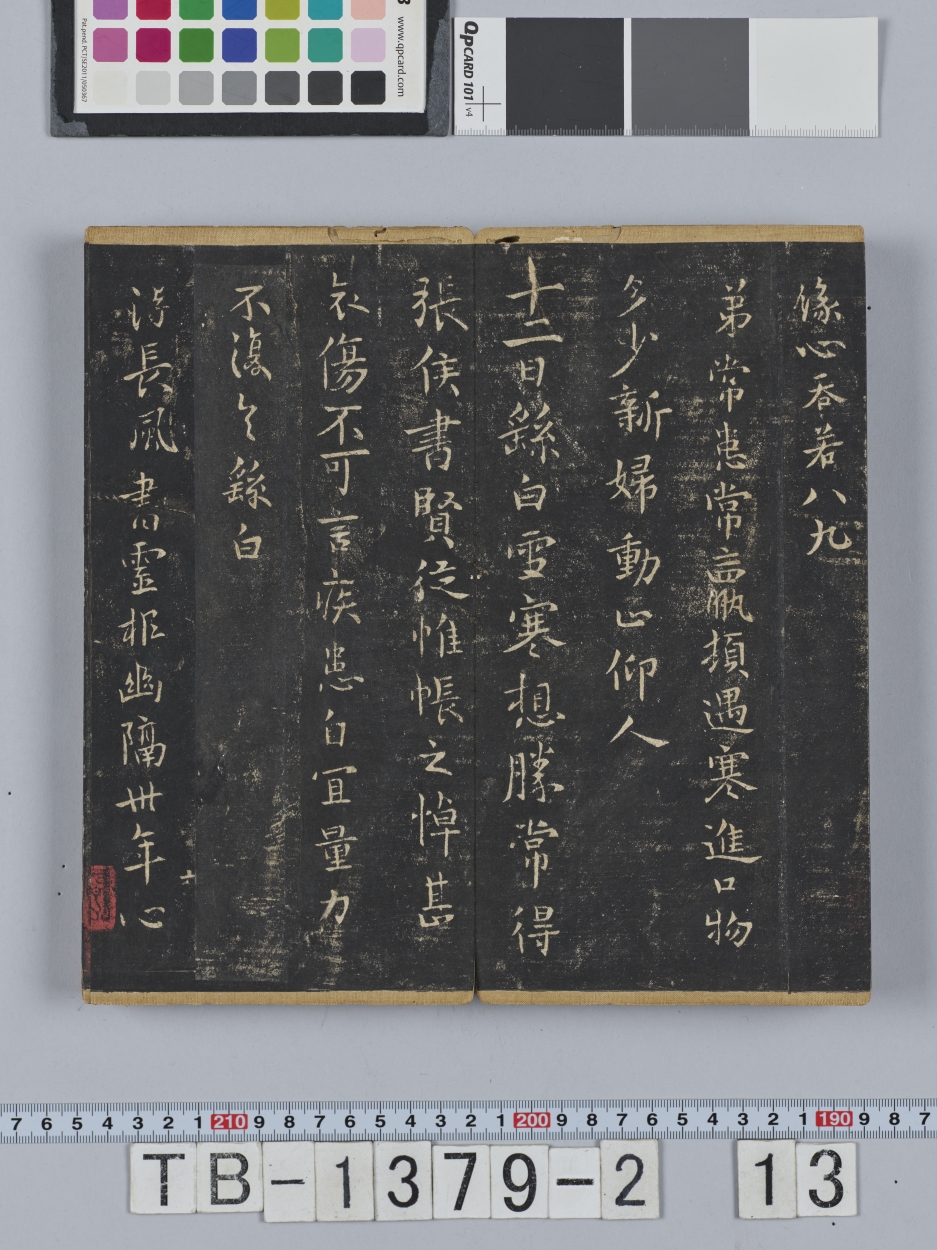 Pat.pend. PCT/SE2011/050367
www.qpcard.com
QPCARD 101 v4
緣心吞若八九
弟常患常羸頓遇寒進口物
多少新婦動止仰人
十二日繇白雪寒想勝常得
張侯書賢從帷帳之悼甚
哀傷不可言疾患自宜量力
不復具繇白
得長風書靈柩幽隔卅年心
7 6 5 4 3 2 1 210 9 8 7 6 5 4 3 2 1 200 9 8 7 6 5 4 3 2 1 190 9 8 7
TB-1379-2 13